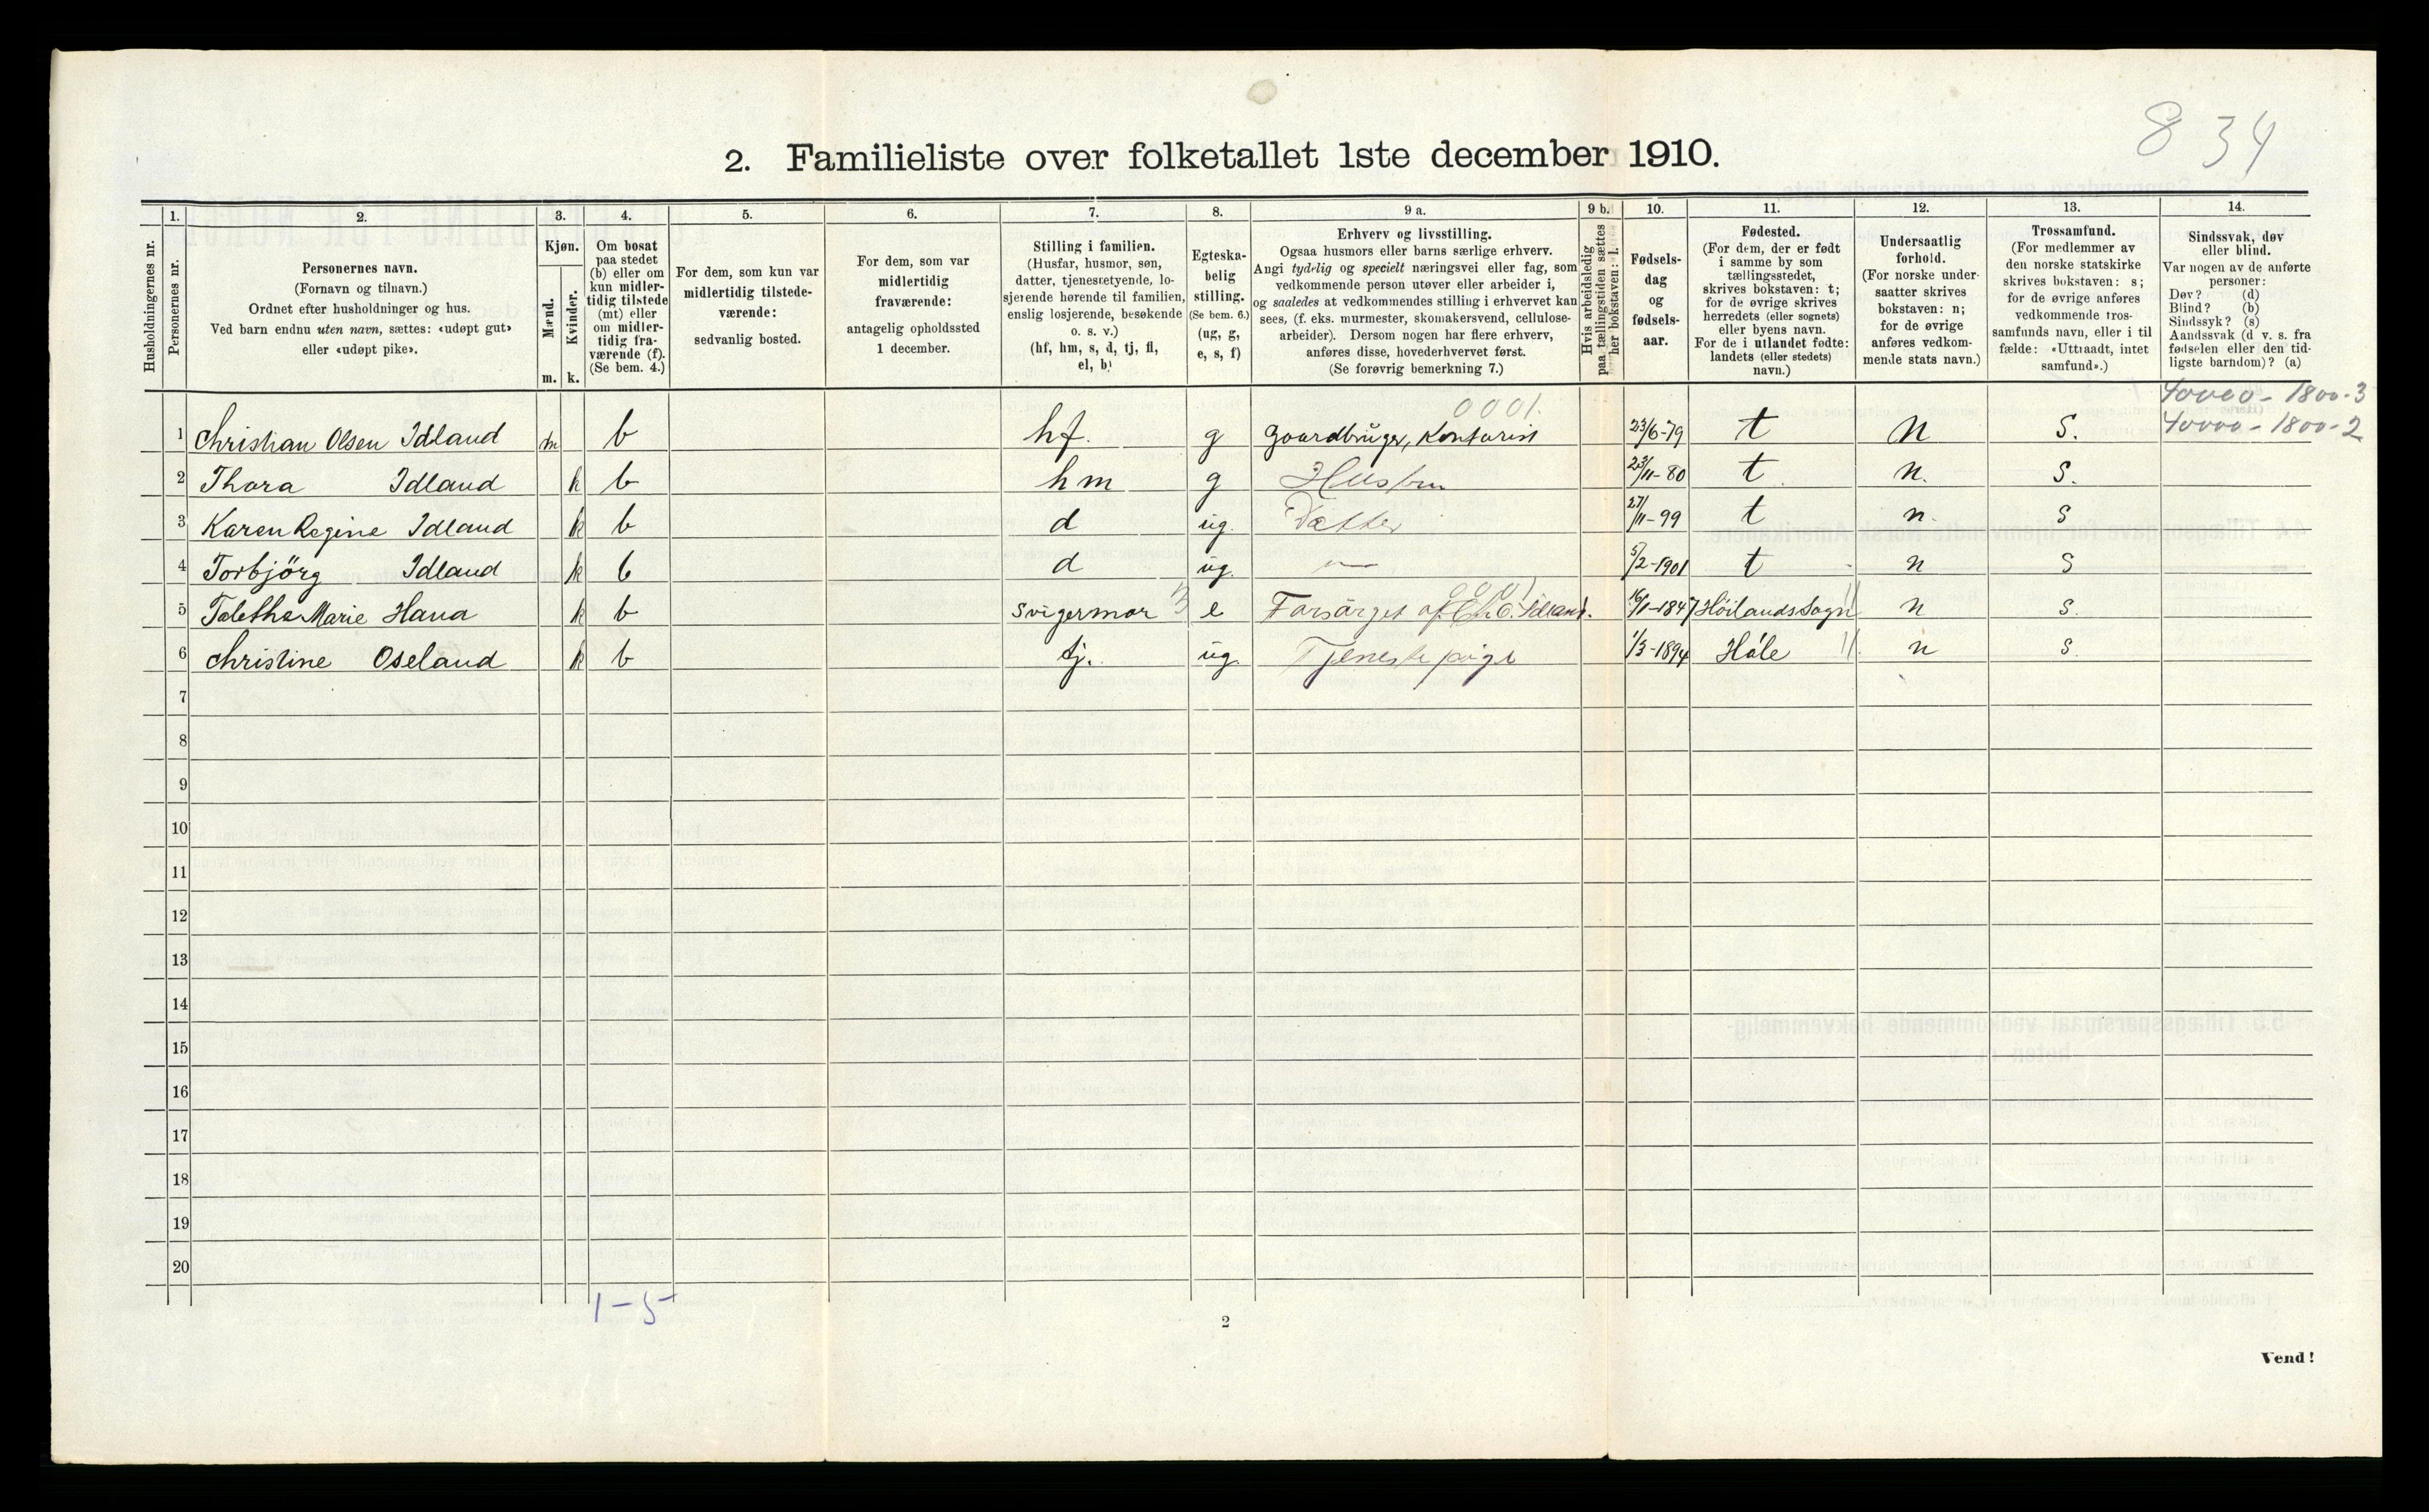 8 34
2. Familieliste over folketallet 1ste december 1910.
Husholdningernes nr.
1. Personernes nr.
2. Personernes navn. (Fornavn og tilnavn.) Ordnet efter husholdninger og hus. Ved barn endnu uten navn, sættes: «udøpt gut» eller «udøpt pike».
3. Kjøn. Mænd. m. Kvinder. k.
4. Om bosat paa stedet (b) eller om kun midler-tidig tilstede (mt) eller om midler-tidig fra-værende (f). (Se bem. 4.)
5. For dem, som kun var midlertidig tilstede-værende: sedvanlig bosted.
6. For dem, som var midlertidig fraværende: antagelig opholdssted 1 december.
7. Stilling i familien. (Husfar, husmor, søn, datter, tjenestetyende, lo-sjerende hørende til familien, enslig losjerende, besøkende o. s. v.) (hf, hm, s, d, tj, fl, el, b)
8. Egteska-belig stilling. (Se bem. 6.) (ug, g, e, s, f)
9 a. Erhverv og livsstilling. Ogsaa husmors eller barns særlige erhverv. Angi tydelig og specielt næringsvei eller fag, som vedkommende person utøver eller arbeider i, og saaledes at vedkommendes stilling i erhvervet kan sees, (f. eks. murmester, skomakersvend, cellulose-arbeider). Dersom nogen har flere erhverv, anføres disse, hovederhvervet først. (Se forøvrig bemerkning 7.)
9 b. Hvis arbeidsledig paa tællingstiden sættes her bokstaven: l.
10. Fødsels-dag og fødsels-aar.
11. Fødested. (For dem, der er født i samme by som tællingsstedet, skrives bokstaven: t; for de øvrige skrives herredets (eller sognets) eller byens navn. For de i utlandet fødte: landets (eller stedets) navn.)
12. Undersaatlig forhold. (For norske under-saatter skrives bokstaven: n; for de øvrige anføres vedkom-mende stats navn.)
13. Trossamfund. (For medlemmer av den norske statskirke skrives bokstaven: s; for de øvrige anføres vedkommende tros-samfunds navn, eller i til fælde: «Uttraadt, intet samfund».)
14. Sindssvak, døv eller blind. Var nogen av de anførte personer: Døv? (d) Blind? (b) Sindssyk? (s) Aandssvak (d v. s. fra fødselen eller den tid-ligste barndom)? (a)
0001.
40000 - 1800 - 3
40000 - 1800 - 2
1 Christian Olsen Idland m b hf. g Gaardbruger, Kontorist 23/6-79 t n S.
2 Thora Idland k b hm g Husfru 23/11-80 t n. S.
3 Karen Regine Idland k b d ug. Datter 27/11-99 t n. S
4 Torbjörg Idland k b d ug. — 5/2-1901 t n S
0001
5 Marie Hana k b Svigermor e Forsörget af Ch. O. Idland. 16/1-1847 Höilands Sogn n S.
6 Christine Oseland k b tj. ug. Tjenestepige 1/3-1894 Höle n S.
7
8
9
10
11
12
13
14
15
16
17
18
19
20
1-5
2
Vend!